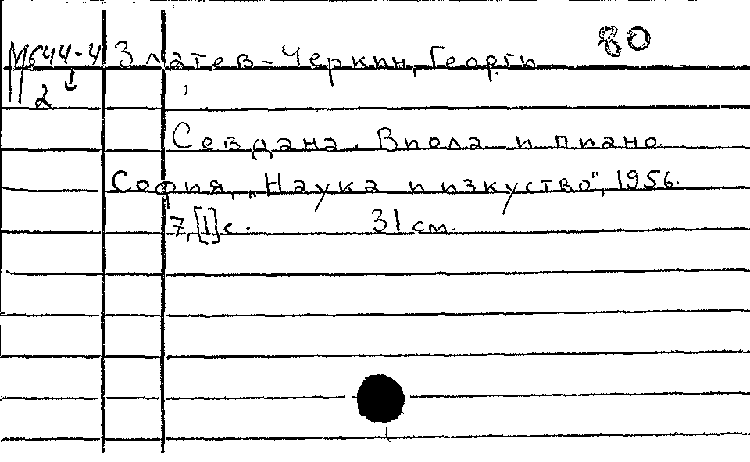 М644-4 Златев-Черкин, Георги 80
2
Севдана. Виола и пиано
София, „Наука и изкуство", 1956.
7,[1]с. 31 см.